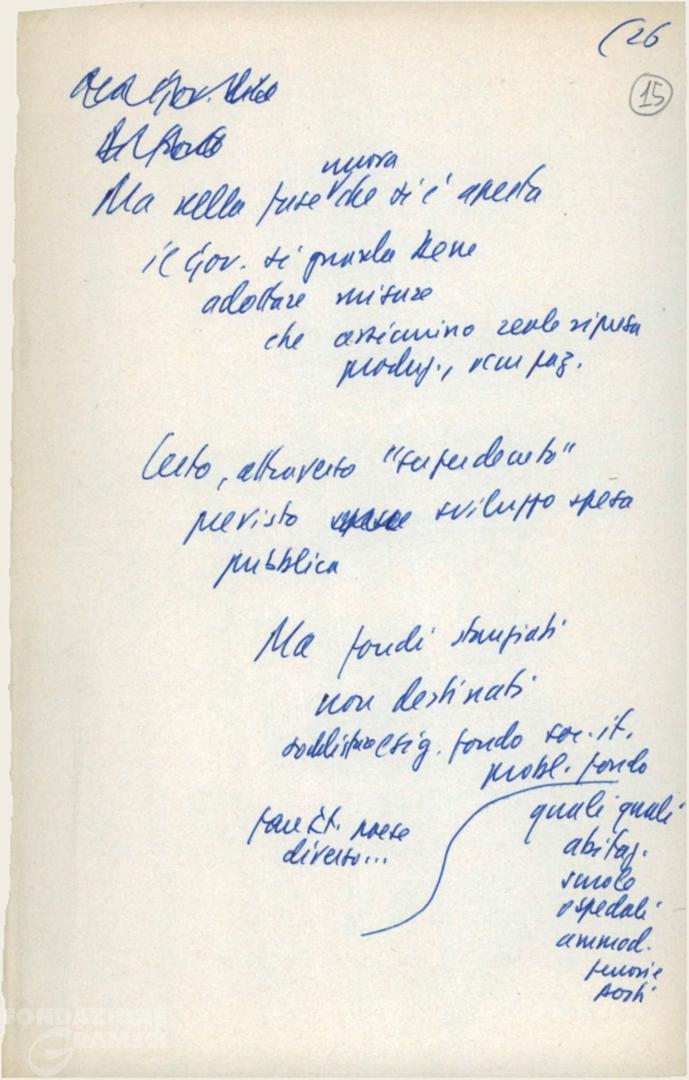 (26
15
nuova
Ma nella fase che si è aperta
il Gov. si guarda bene
adottare misure
che assicurino reale ripresa
produz., occupaz.
Certo, attraverso "superdecreto"
previsto sviluppo spesa
pubblica
Ma fondi stanziati
non destinati
soddisfare esig. fondo soc. it.
probl. fondo
quali quali
abitaz.
scuole
ospedali
ammod.
ferrovie
porti
fare It. paese
diverso...
FONDAZIONE
GRAMSCI